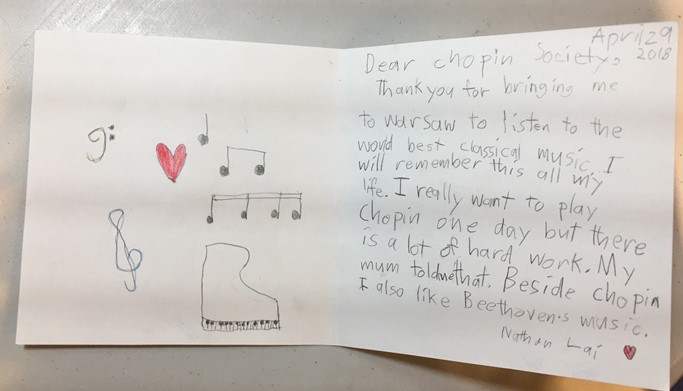 April 29
2018
Dear chopin Society,
Thank you for bringing me
to warsaw to listen to the
world best classical music. I
will remember this all my
life. I really want to play
Chopin one day but there
is a lot of hard work. My
mum toldmethat. Beside chopin
I also like Beethoven's music.
Nathan Lai